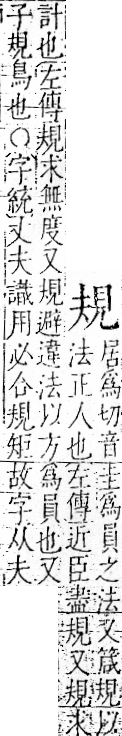 規居爲切音圭爲員之法又箴規以
法正人也左傳近臣盡規又規求
計也左傳規求無度又規避違法以方爲員也又
子規鳥也○字統丈夫識用必合規矩故字从夫